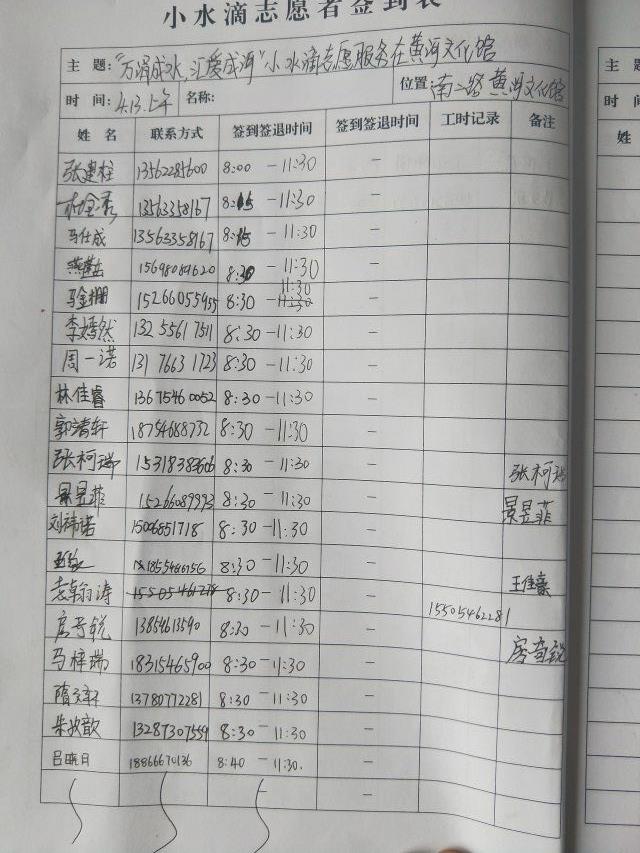 小水滴志愿者签到表
主 题: "万涓成水,汇爱成河"小水滴志愿服务在黄河文化馆
时 间: 4.13.上午 名称: 位置: 南二路黄河文化馆
姓 名 联系方式 签到签退时间 签到签退时间 工时记录 备注
张建柱 13562285600 8:00 -11:30 -
13563358167 8:15 -11:30 -
马仕成 13563358167 8:15 -11:30 -
15698089620 8:30 -11:30 -
11:30
马金栅 15266055955 8:30 -11:30 -
李嫣然 132 5561 7511 8:30 -11:30 -
周一诺 131 7663 1723 8:30 -11:30 -
林佳睿 13675460052 8:30 -11:30 -
郭濤轩 18754688732 8:30 -11:30 -
张柯瑞 15318383666 8:30 -11:30 - 张柯瑞
景昱菲 15266089393 8:30 -11:30 - 景昱菲
刘祎诺 15006851718 8:30 -11:30 -
18185546156 8:30 -11:30 - 王佳豪
老翰涛 15505461278 8:30 -11:30 - 15505462281
房奇锐 13854613590 8:30 -11:30 - 房奇锐
马梓瑞 18315465900 8:30 -11:30 -
隋文轩 13780772281 8:30 -11:30 -
朱妝歆 13287307559 8:30 -11:30 -
吕晓日 18866670136 8:40 -11:30. -
- -
主 题
时 间
姓